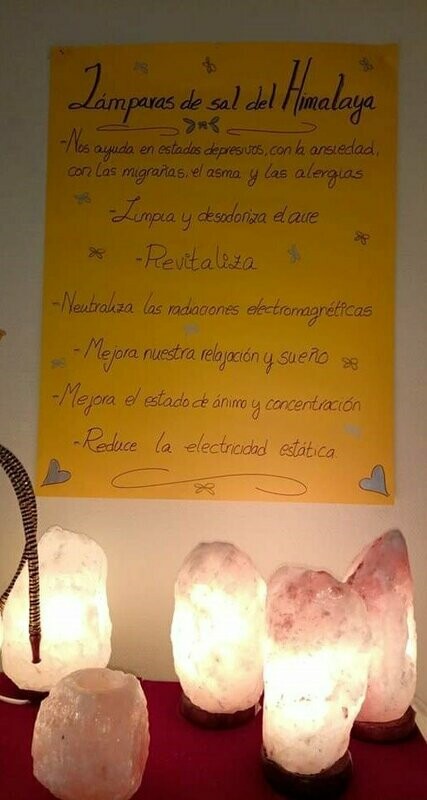 Lámparas de sal del Himalaya
-Nos ayuda en estados depresivos, con la ansiedad,
con las migrañas, el asma y las alergias
-Limpia y desodoriza el aire
-Revitaliza
-Neutraliza las radiaciones electromagnéticas
-Mejora nuestra relajación y sueño
-Mejora el estado de ánimo y concentración
-Reduce la electricidad estática.